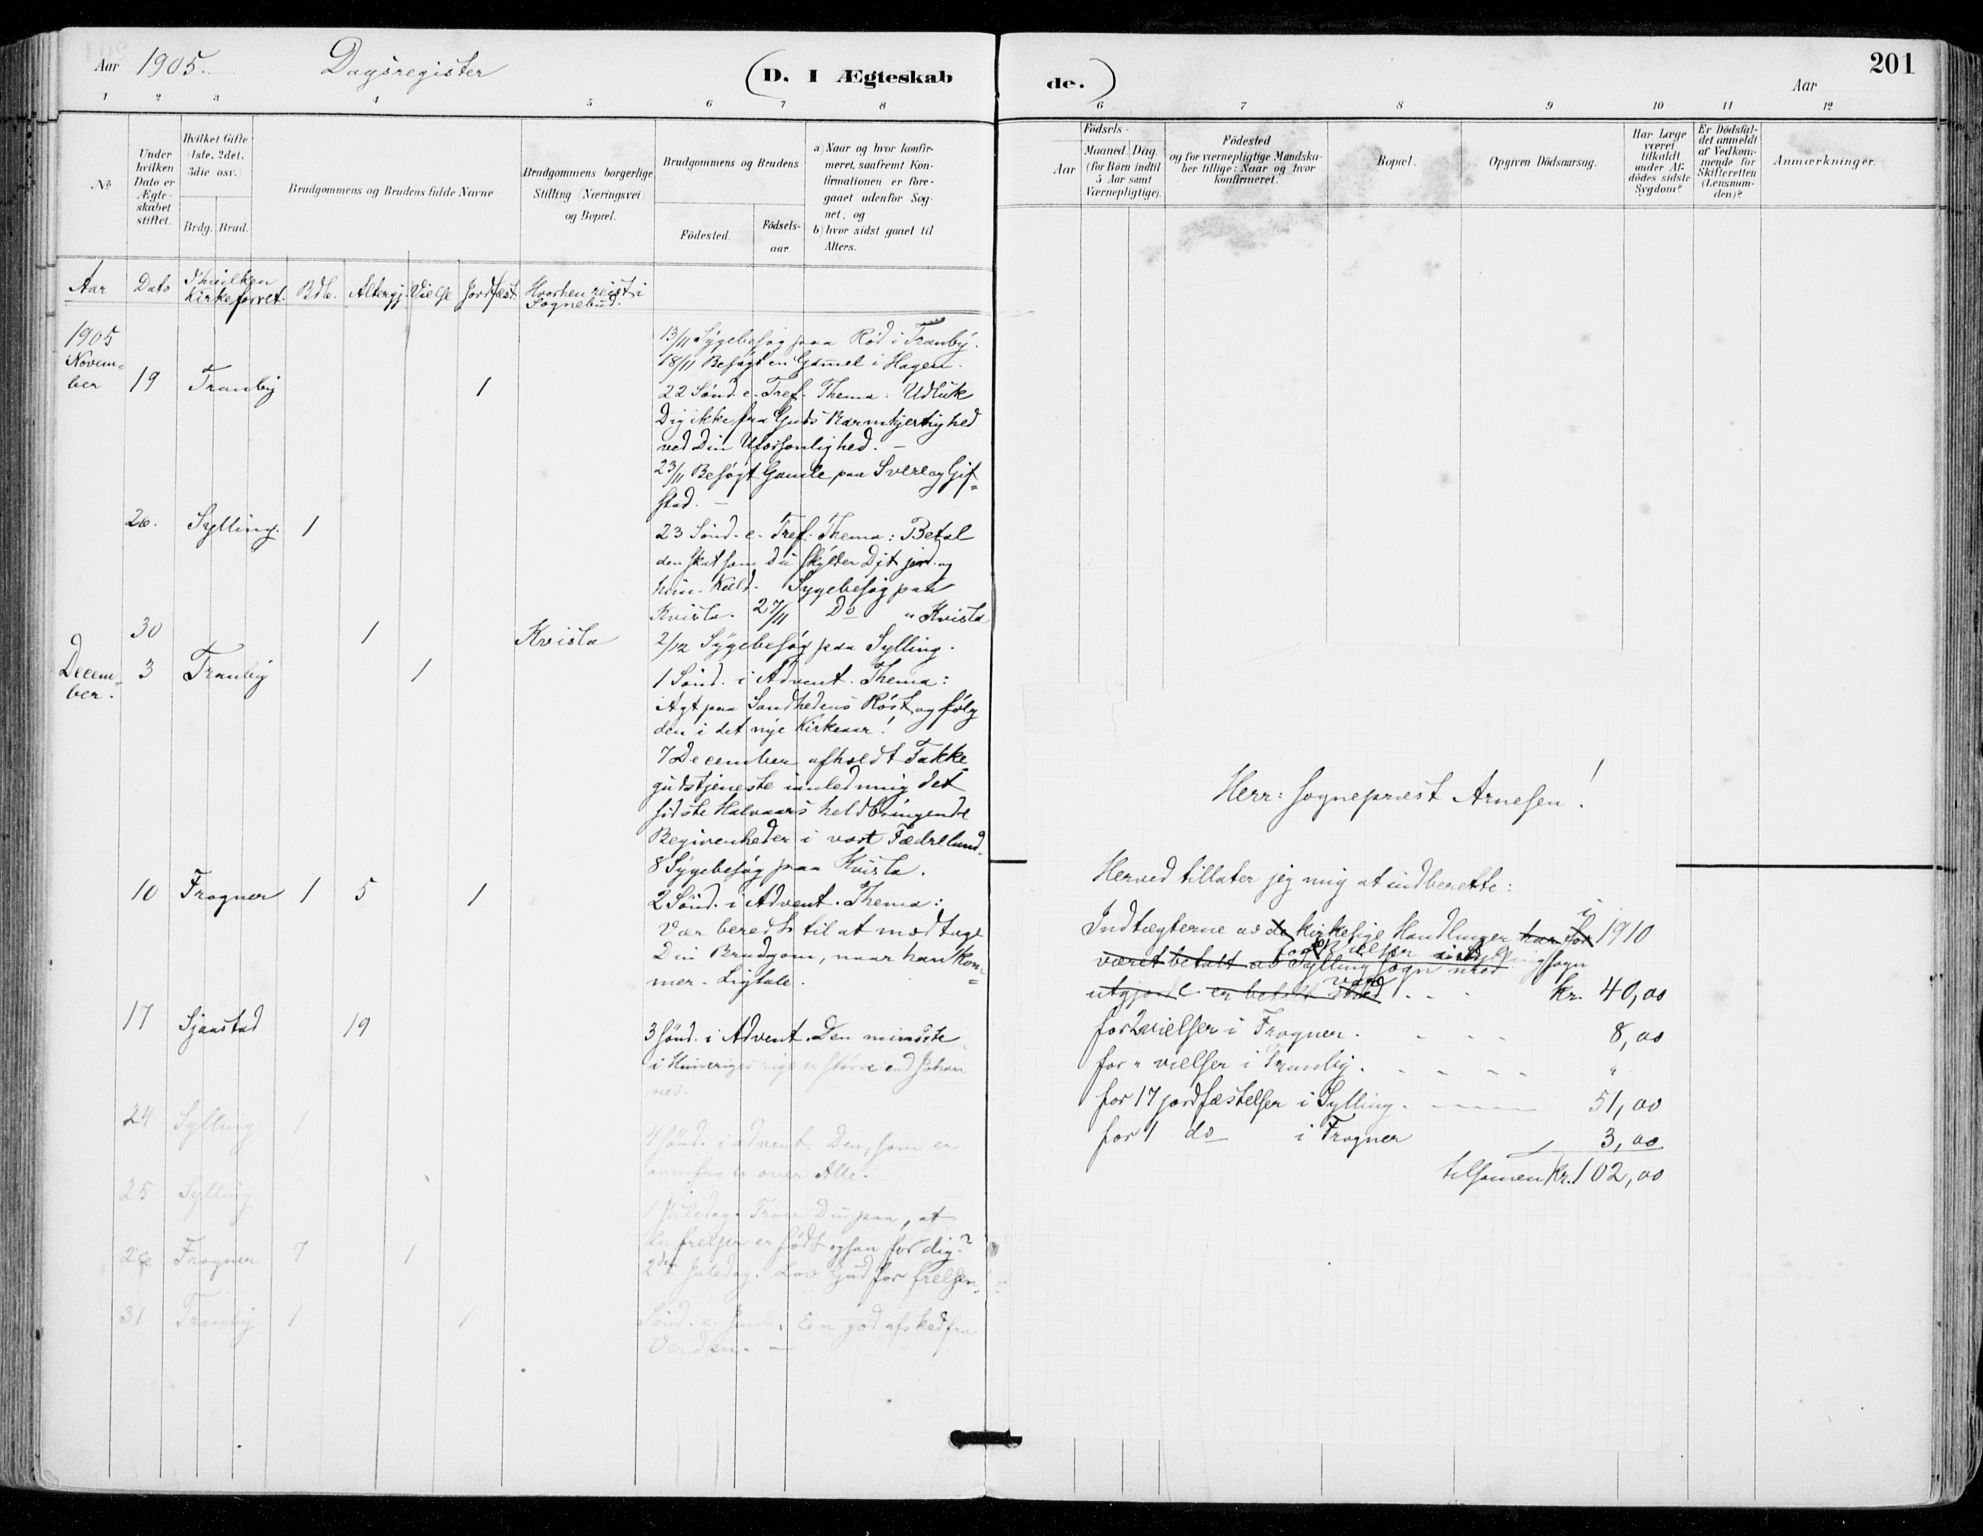 Aar 1905. Dagsregister (D. I Ægteskab
1 2 3 4 5 6 7 8
№
Under hvilken Dato er Ægteskabet stiftet.
Hvilket Gifte (1ste, 2det, 3die osv.)
Brdg. Brud.
Brudgommens og Brudens fulde Navne
Brudgommens borgerlige Stilling (Næringsvei) og Bopæl.
Brudgommens og Brudens
Fødested. Fødselsaar.
a) Naar og hvor konfirmeret, saafremt Konfirmationen er foregaaet udenfor Sognet, og
b) hvor sidst gaaet til Alters.
Aar Dato I hvilken Kirke forret. Bdb. Altergj. Vielse Jordfæst. Hvorhen reist i Sognebud.
1905
13/11 Sygebesøg paa Rød i Tranby.
18/11 Besøgt en Gammel i Hagen.
November 19 Tranby 1 22 Sønd. e. Tref. Thema: Udluk
Dig ikke fra Guds Barmhjertighed
ved Din Uforsonlighed. —
23/11 Besøgt Gamle paa Svere og Gif=
stad. —
26. Sylling. 1 23 Sønd. e. Tref. Thema: Betal
den Skat som Du skylder Dit jord. og
him. Kald. Sygebesøg paa
Kvista. 27/11 Do " Kvista
30 1 Kvista 2/12 Sygebesøg paa Sylling.
December. 3 Tranby 1 1 Sønd. i Advent. Thema:
Agt paa Sandhedens Røst og følg
den i det nye Kirkeaar!
7 December afholdt Takke
gudstjeneste i anledning det
sidste Halvaars heldbringende
Begivenheder i vort Fædreland.
8 Sygebesøg paa Kvista.
10 Frogner 1 5 1 2 Sønd. i Advent. Thema:
Vær beredt til at modtage
Din Brudgom, naar han kom=
mer. Ligtale.
17 Sjaastad 19 3 Sønd. i Advent. Den mindste
i Himmeriges rige er større end Johan
nes.
24 Sylling 1 4 Sønd. i advent. Den, som er
ovenfra er over Alle.
25 Sylling 1 Juledag. Tror Du paa, at
en frelser er født ogsaa for dig?
26 Frogner 7 1 2den Juledag. Lov Gud for frelsen
31 Tranby 1 1 Sønd. e. Jul. En god afsked fra
Verden. —
de.) Aar 201
6 7 8 9 10 11 12
Aar
Fødsels-
Maaned. Dag.
(for Børn indtil 5 Aar samt Værnepligtige).
Fødested
og for værnepligtige Mandskaber tillige: Naar og hvor konfirmeret.
Bopæl.
Opgiven Dødsaarsag.
Har Læge været tilkaldt under Afdødes sidste Sygdom?
Er Dødsfaldet anmeldt af Vedkommende for Skifteretten (Lensmanden)?
Anmærkninger.
Herr: sogneprest Arnesen!
Herved tillater jeg mig at indberette:
Indtægterne av de kirkelige Handlinger har for i 1910
for Vielser i Syllingsogn
været betalt av Sylling sogn med
utgjorde er betalt med var - - - kr. 40,00
for 2 vielser i Frogner. - - - 8,00
for " vielser i Tranby. - - - - "
for 17 jordfæstelser i Sylling. - - - 51,00
for 1 do i Frogner 3,00
tilsamen Kr. 102,00